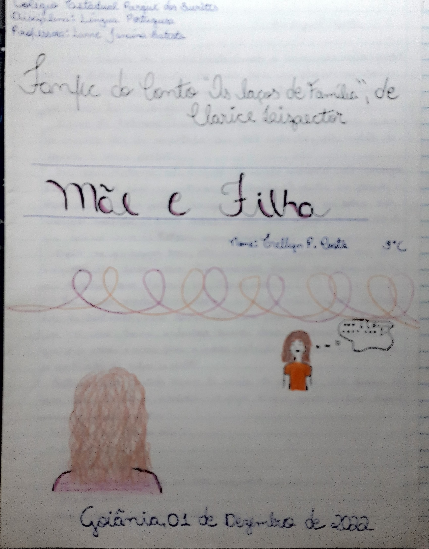 Colégio Estadual Parque dos Buritis
Disciplina: Língua Portuguesa
Professora:
Fanfic do Conto "Os laços de Família", de
Clarice Lispector
Mãe e Filha
Nome: F. 3°C
Goiânia, 01 de Dezembro de 2022